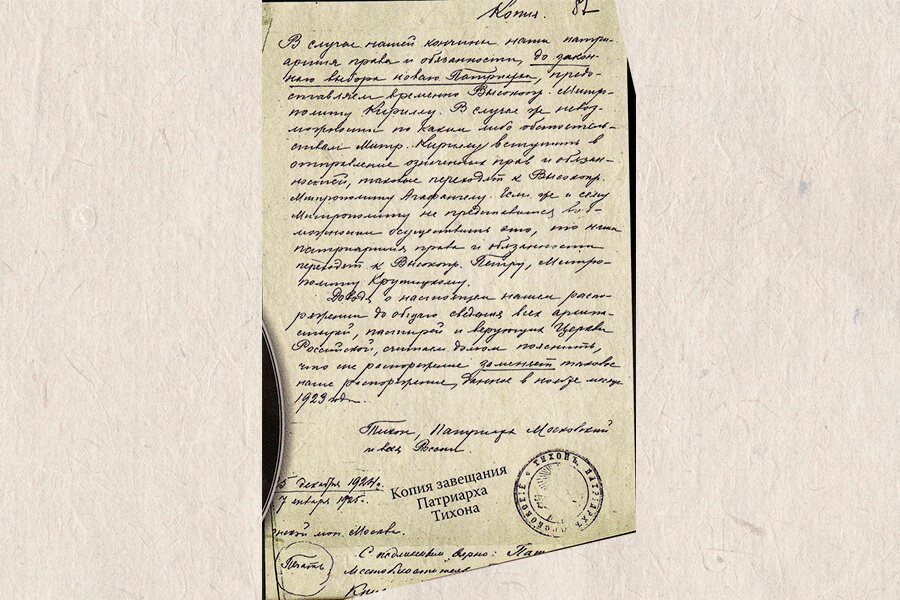 Копия. 87
В случае нашей кончины наши патри-
аршия права и обязанности, до закон-
наго выбора новаго Патриарха, предо-
ставляем временно Высокопр. Митро-
политу Кириллу. В случае же невоз-
можности по каким либо обстоятель-
ствам Митр. Кириллу вступить в
отправление означенных прав и обязан-
ностей, таковые переходят к Высокопр.
Митрополиту Агафангелу. Если же и сему
Митрополиту не представится воз-
можности осуществить это, то наши
патриаршия права и обязанности
переходят к Высокопр. Петру, Митро-
политу Крутицкому.
Доводя о настоящем нашем распо-
ряжении до общаго сведения всех архипа-
стырей, пастырей и верующих Церкви
Российской, считаем долгом пояснить,
что сие распоряжение заменяет таковое
наше распоряжение, данное в ноябре месяце
1923 года.
Тихон, Патриарх Московский
и всея России.
5 декабря 1924 г.
7 января 1925.
нской мон. Москва.
Копия завещания
Патриарха
Тихона
ТИХОНЪ, ПАТРИАРХЪ МОСКОВСКІЙ
Печать
С подлинным верно: Пат
Местоблюститель